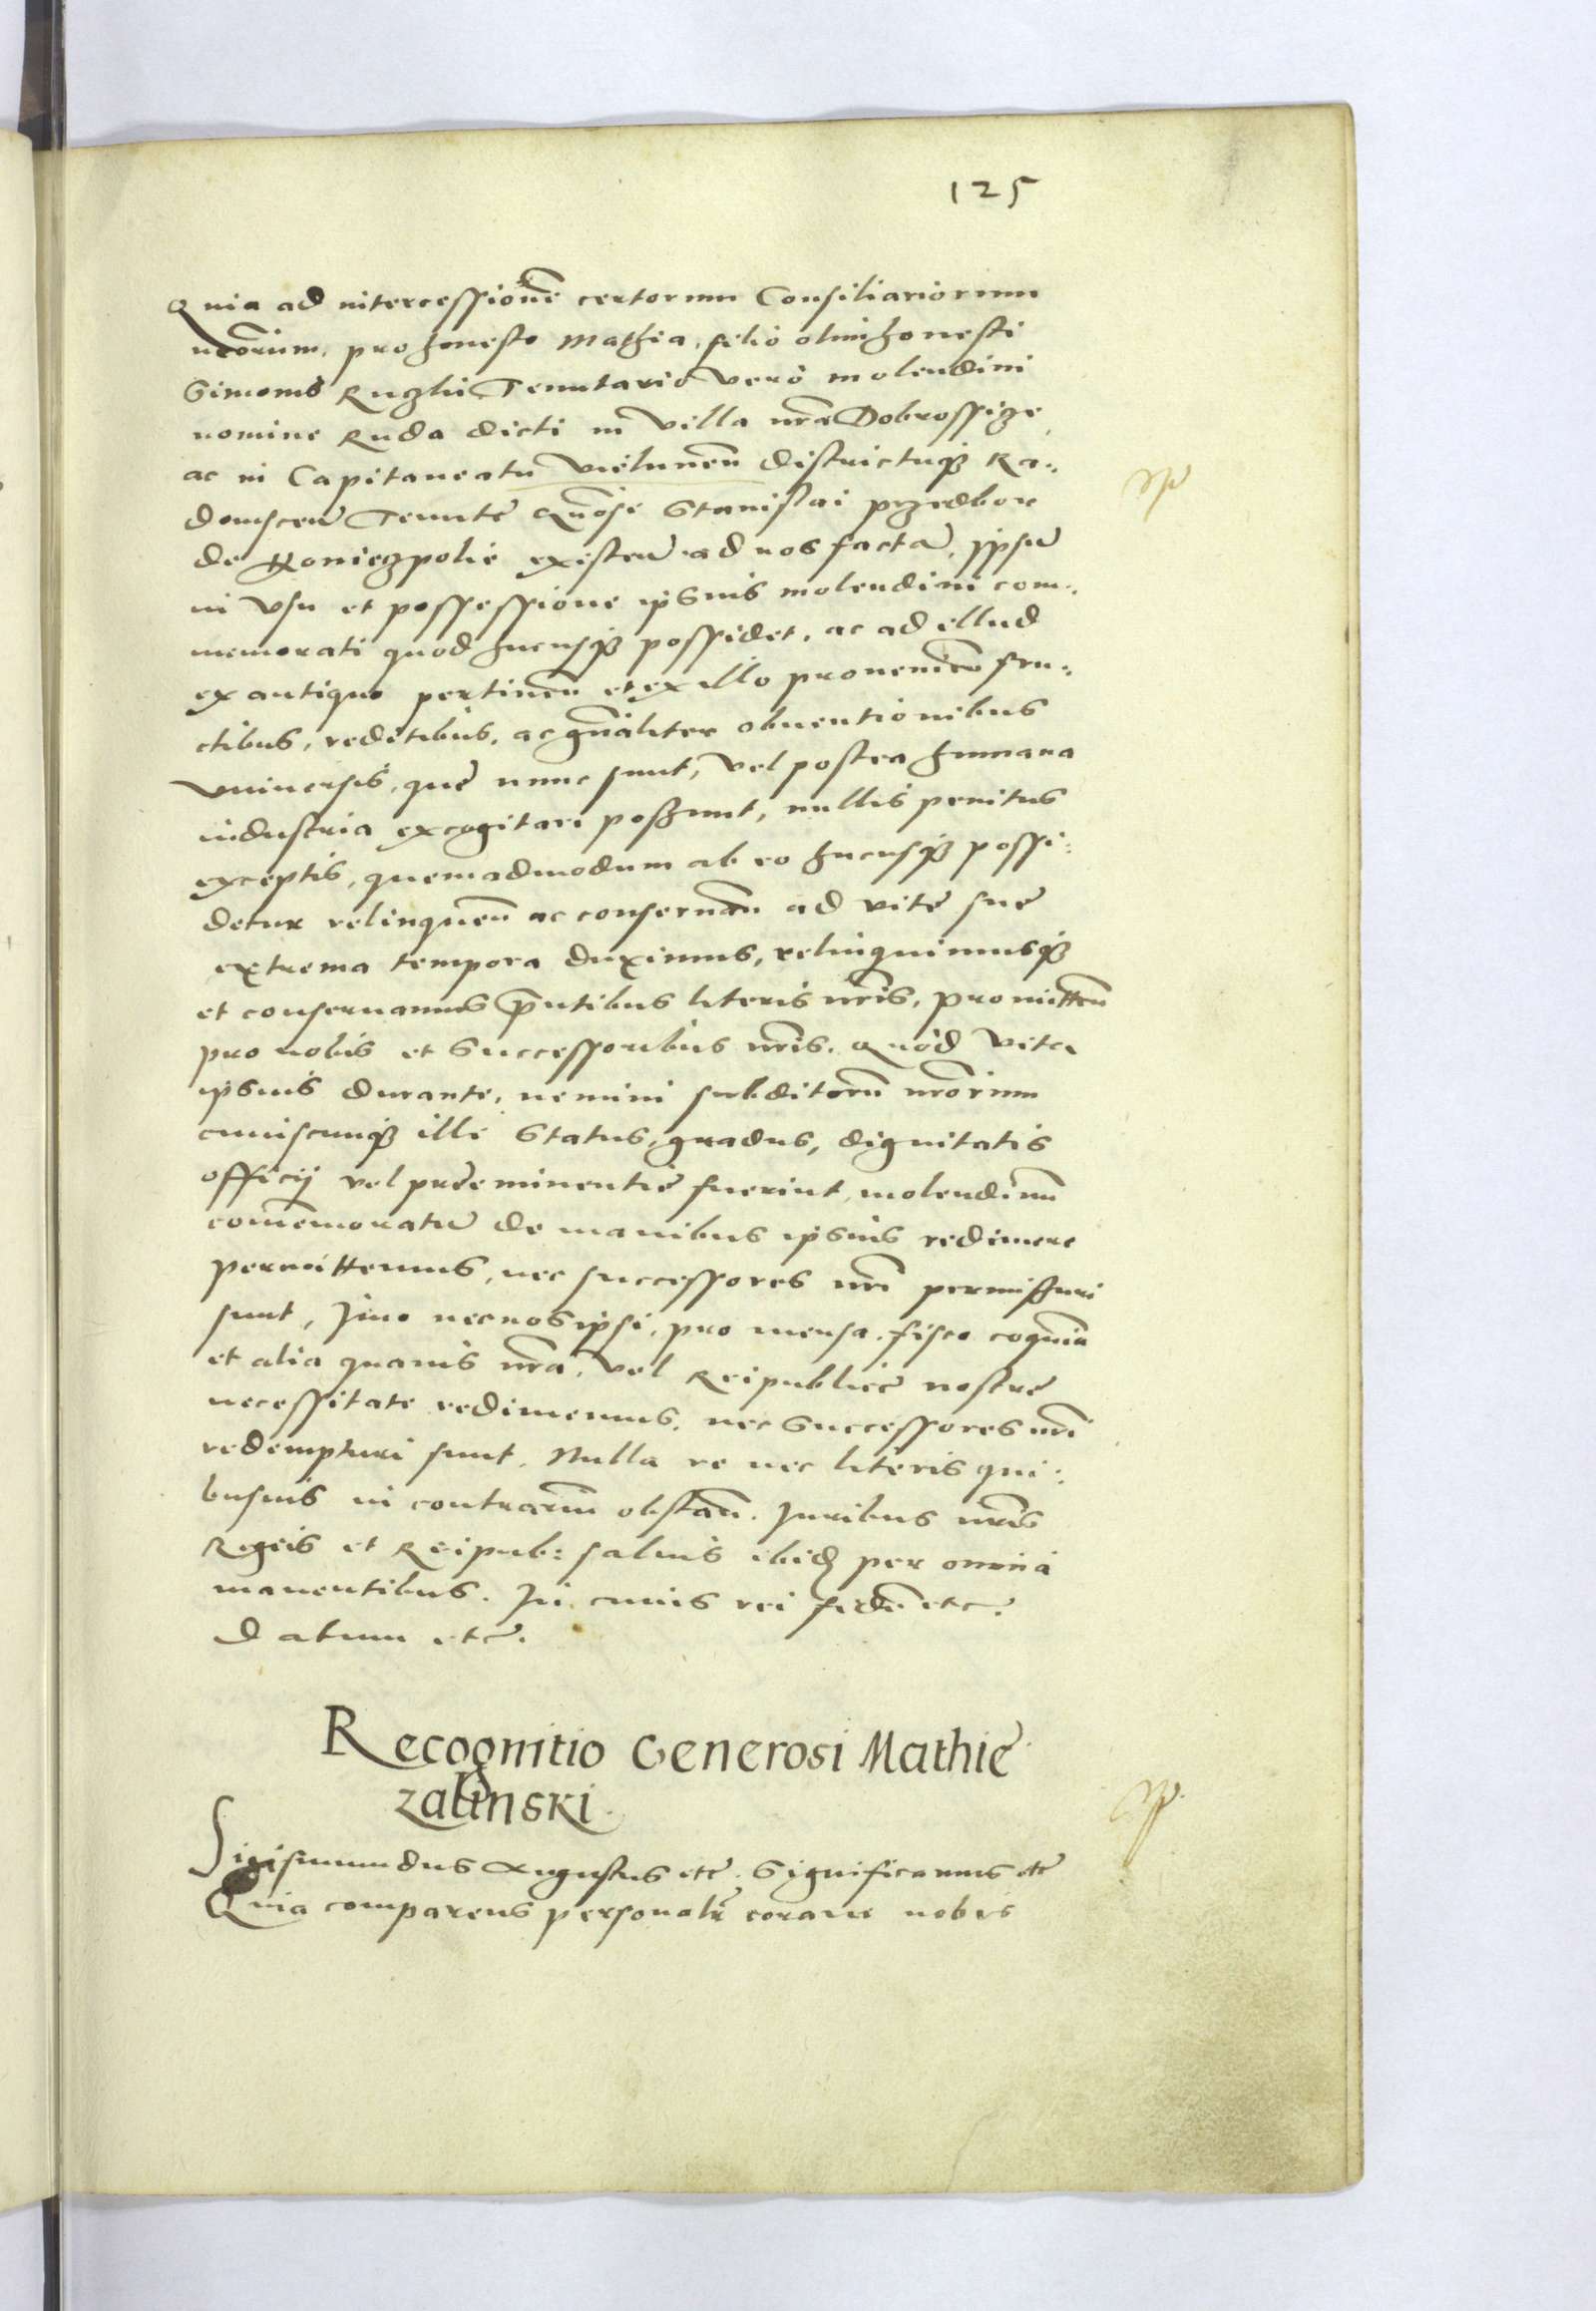 125
Quia ad intercessionē certorum Consiliariorum
nr̄orum, pro honesto Mathia, filio olim honesti
Simonis Ruzhi Tenutario vero molendini
nomine Ruda dicti in villa nr̄a Dobrossize
ac in Capitaneatu Vielunen̄ districtuqꝫ Ra-
domscen̄ Tenute Gn̄osi Stanislai przedbor
de Koniezpolie existen̄ ad nos factā, Ipsū
in vsu et possessione ipsius molendini com-
memorati quod hucusqꝫ possidet, ac ad illud
ex antiquo pertinen̄ et ex illo prouenien̄ fru-
ctibus, reditibus, ac gn̄aliter obuentionibus
vniuersis, que nunc sunt, vel postea humana
industria excogitari possunt, nullis penitus
exceptis, quemadmodum ab eo hucusqꝫ possi-
detur relinquen̄ ac conseruan̄ ad vite sue
extrema tempora duximus, relinquimusqꝫ
et conseruamus p̄ntibus literis nr̄is, promitten̄
pro nobis et Successoribus nr̄is. Quod vita
ipsius durante, nemini subditorū nr̄orum
cuiuscunqꝫ illi Status, gradus, dignitatis
officij vel preeminentie fuerint, molendinū
com̄emoratū de manibus ipsius redimere
permittemus, nec successores nr̄i permissuri
sunt, Imo nec nos ipsi, pro mensa, fisco
et alia quauis nr̄a, vel Reipublice nostre
necessitate redimemus, nec Successores nr̄i
redempturi sunt. Nulla re nec literis qui-
busuis in contrarium obstan̄. Iuribus nr̄is
Regiis et Reipub: saluis ibidē per omnia
manentibus. In cuius rei fidē etc.
Datum etc.
Recognitio Generosi Mathie
zalinski.
Sigismundus Augustus etc. Significamus etc
Quia comparens personalr̄ coram nobis